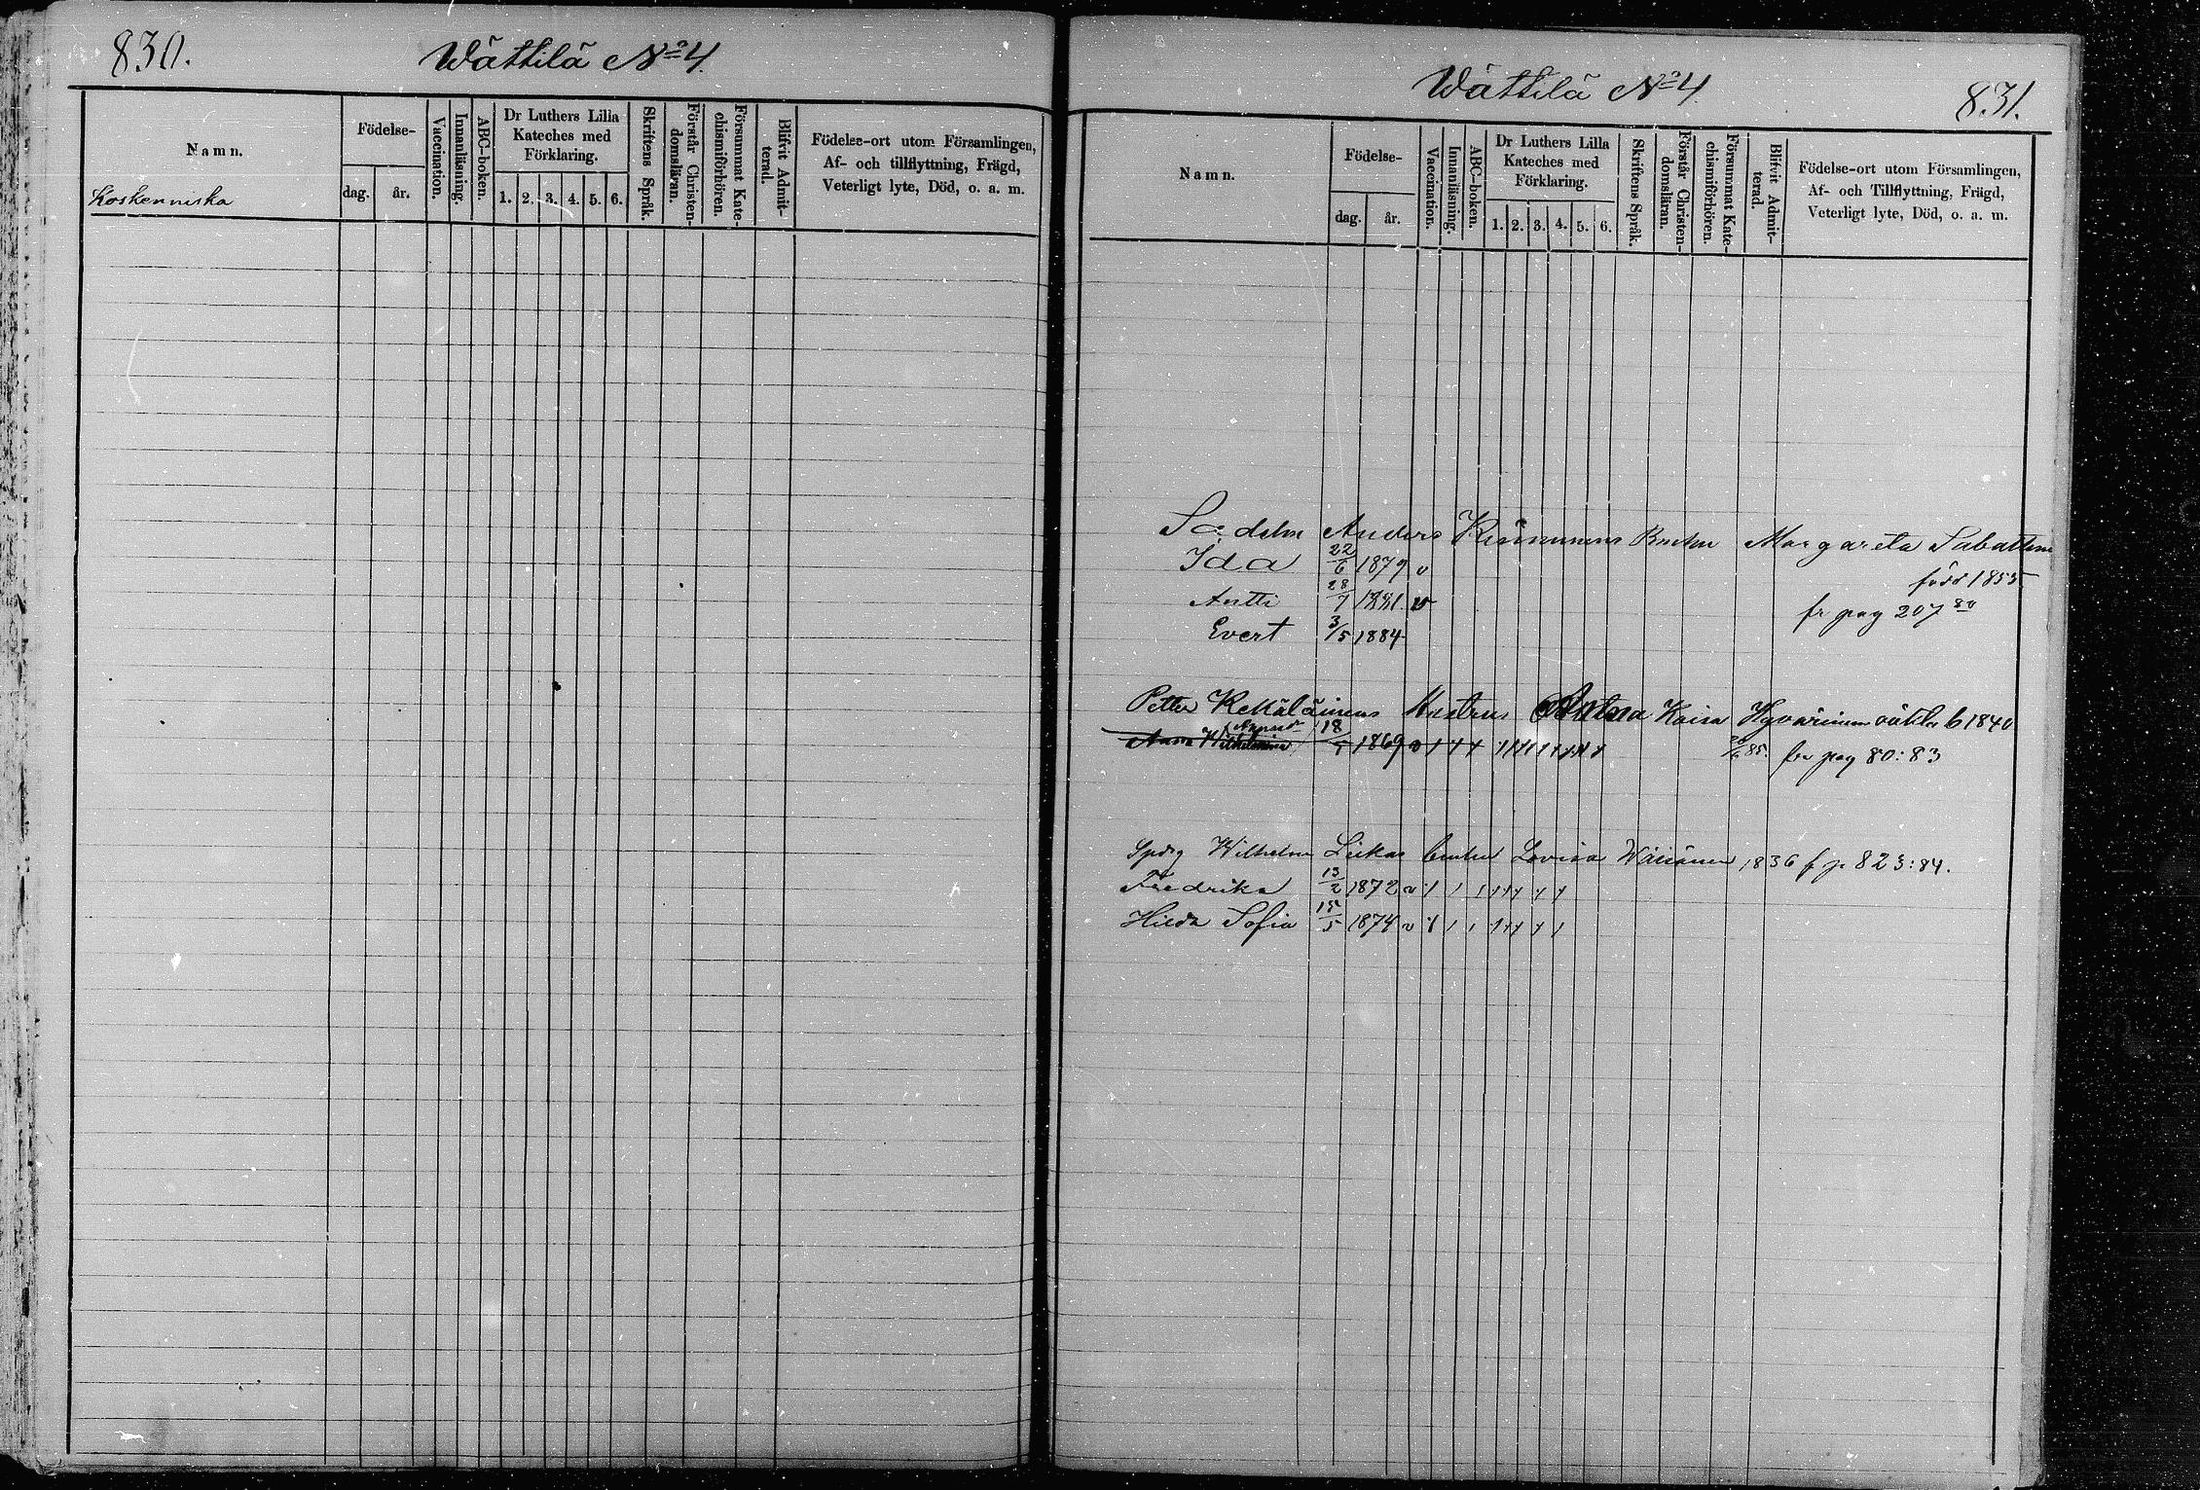 830.
Wättilä No 4.
Namn.
Födelse-
dag.
år.
Vaccination.
Innanläsning.
ABC-boken.
Dr Luthers Lilla
Kateches med
Förklaring.
1. 2. 3. 4. 5. 6.
Skriftens Språk.
Förstår Christen-
domsläran.
Försummat Kate-
chismiförhören.
Blifvit Admit-
terad.
Födelse-ort utom Församlingen,
Af- och tillflyttning, Frägd,
Veterligt lyte, Död, o. a. m.
Koskenniska
Wättilä No 4.
831.
Namn.
Födelse-
dag.
år.
Vaccination.
Innanläsning.
ABC-boken.
Dr Luthers Lilla
Kateches med
Förklaring.
1. 2. 3. 4. 5. 6.
Skriftens Språk.
Förstår Christen-
domsläran.
Försummat Kate-
chismiförhören.
Blifvit Admit-
terad.
Födelse-ort utom Församlingen,
Af- och Tillflyttning, Frägd,
Veterligt lyte, Död, o. a. m.
Anders Margareta
Ida 22/6 1879 v
född 1855
Antti 28/7 1881. v
fr pag 207 80
Evert 3/5 1884
Petter Kaisa 1840
August 18
Anna Wilhelmina 1869 v
85. fr pag 80:83
Wilhelm Lovisa 1836 f p 823:84.
Fredrika 13/2 1872 v
Hilda Sofia 15/5 1874 v